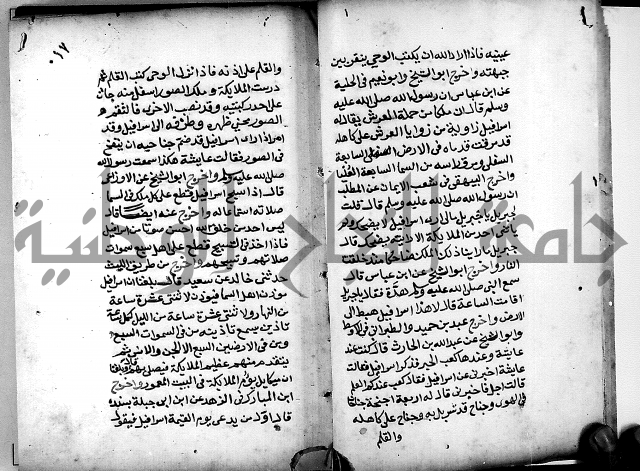 عينيه فاذا اراد الله ان يكتب الوحي ينقر بين
جبهته واخرج ابو الشيخ وابو نعيم في الحلية
عن ابن عباس ان رسول الله صلى الله عليه
وسلم قال ان ملكا من حملة العرش يقال له
اسرافيل زاوية من زوايا العرش على كاهله
قد مرقت قدماه في الارض السابعة
السفلى ومرق راسه من السما السابعة العليا
واخرج البيهقي في شعب الايمان عن المطلب
ان رسول الله صلى الله عليه وسلم قال قلت
لجبريل يا جبريل مالي لا ارى اسرافيل لا يضحك ولم
ياتني احد من الملايكة الا رايته يضحك قال
جبريل ما راينا ذلك الملك ضاحكا منذ خلقت
النار واخرج ابو الشيخ عن ابن عباس قال
سمع النبي صلى الله عليه وسلم هدة فقال يا جبريل
اقامت الساعة قال لا هذا اسرافيل هبط الى
الارض واخرج عبد بن حميد والطبراني في الاوسط
وابو الشيخ عن عبد الله بن الحارث قال كنت عند
عايشة وعندها كعب الحبر فذكر اسرافيل فقالت
عايشة اخبرني عن اسرافيل فقال كعب عندكم العلم
قالت اجل فاخبرني قال له اربعة اجنحة جناحان
في الهوى وجناح قد تسربل به وجناح على كاهله
والقلم
٠١٧
والقلم على اذنه فاذا نزل الوحي كتب القلم ثم
درست الملايكة وملك الصور اسفل منه جاث
على احدى ركبتيه وقد نصب الاخرى فالتقم
الصور محني ظهره وطرفه الى اسرافيل وقد
امر اذا راى اسرافيل قد ضم جناحيه ان ينفخ
في الصور فقالت عايشة هكذا سمعت رسول الله
صلى الله عليه وسلم واخرج ابو الشيخ عن الاوزاعي
قال اذا سبح اسرافيل قطع على كل ملك في السما
صلاته استماعا له واخرج عنه ايضا قال
ليس احد من خلق الله احسن صوتا من اسرافيل
فاذا اخذ في التسبيح قطع على اهل سبع سموات
صلاتهم وتسبيحهم واخرج من طريق الليث
حدثني خالد عن سعيد قال بلغنا ان اسرافيل
موذن اهل السما فيوذن لاثنتي عشرة ساعة
من النهار ولاثنتي عشرة ساعة من الليل لكل ساعة
تاذين يسمع تاذينه من في السموات السبع
ومن في الارضين السبع الا الجن والانس ثم
يتقدم منهم عظيم الملايكة فيصلي بهم قال وبلغنا
ان ميكايل يوم الملايكة في البيت المعمور واخرج
ابن المبارك في الزهد عن ابن ابي جبلة بسنده
قال اول من يدعى يوم القيمة اسرافيل فيقول